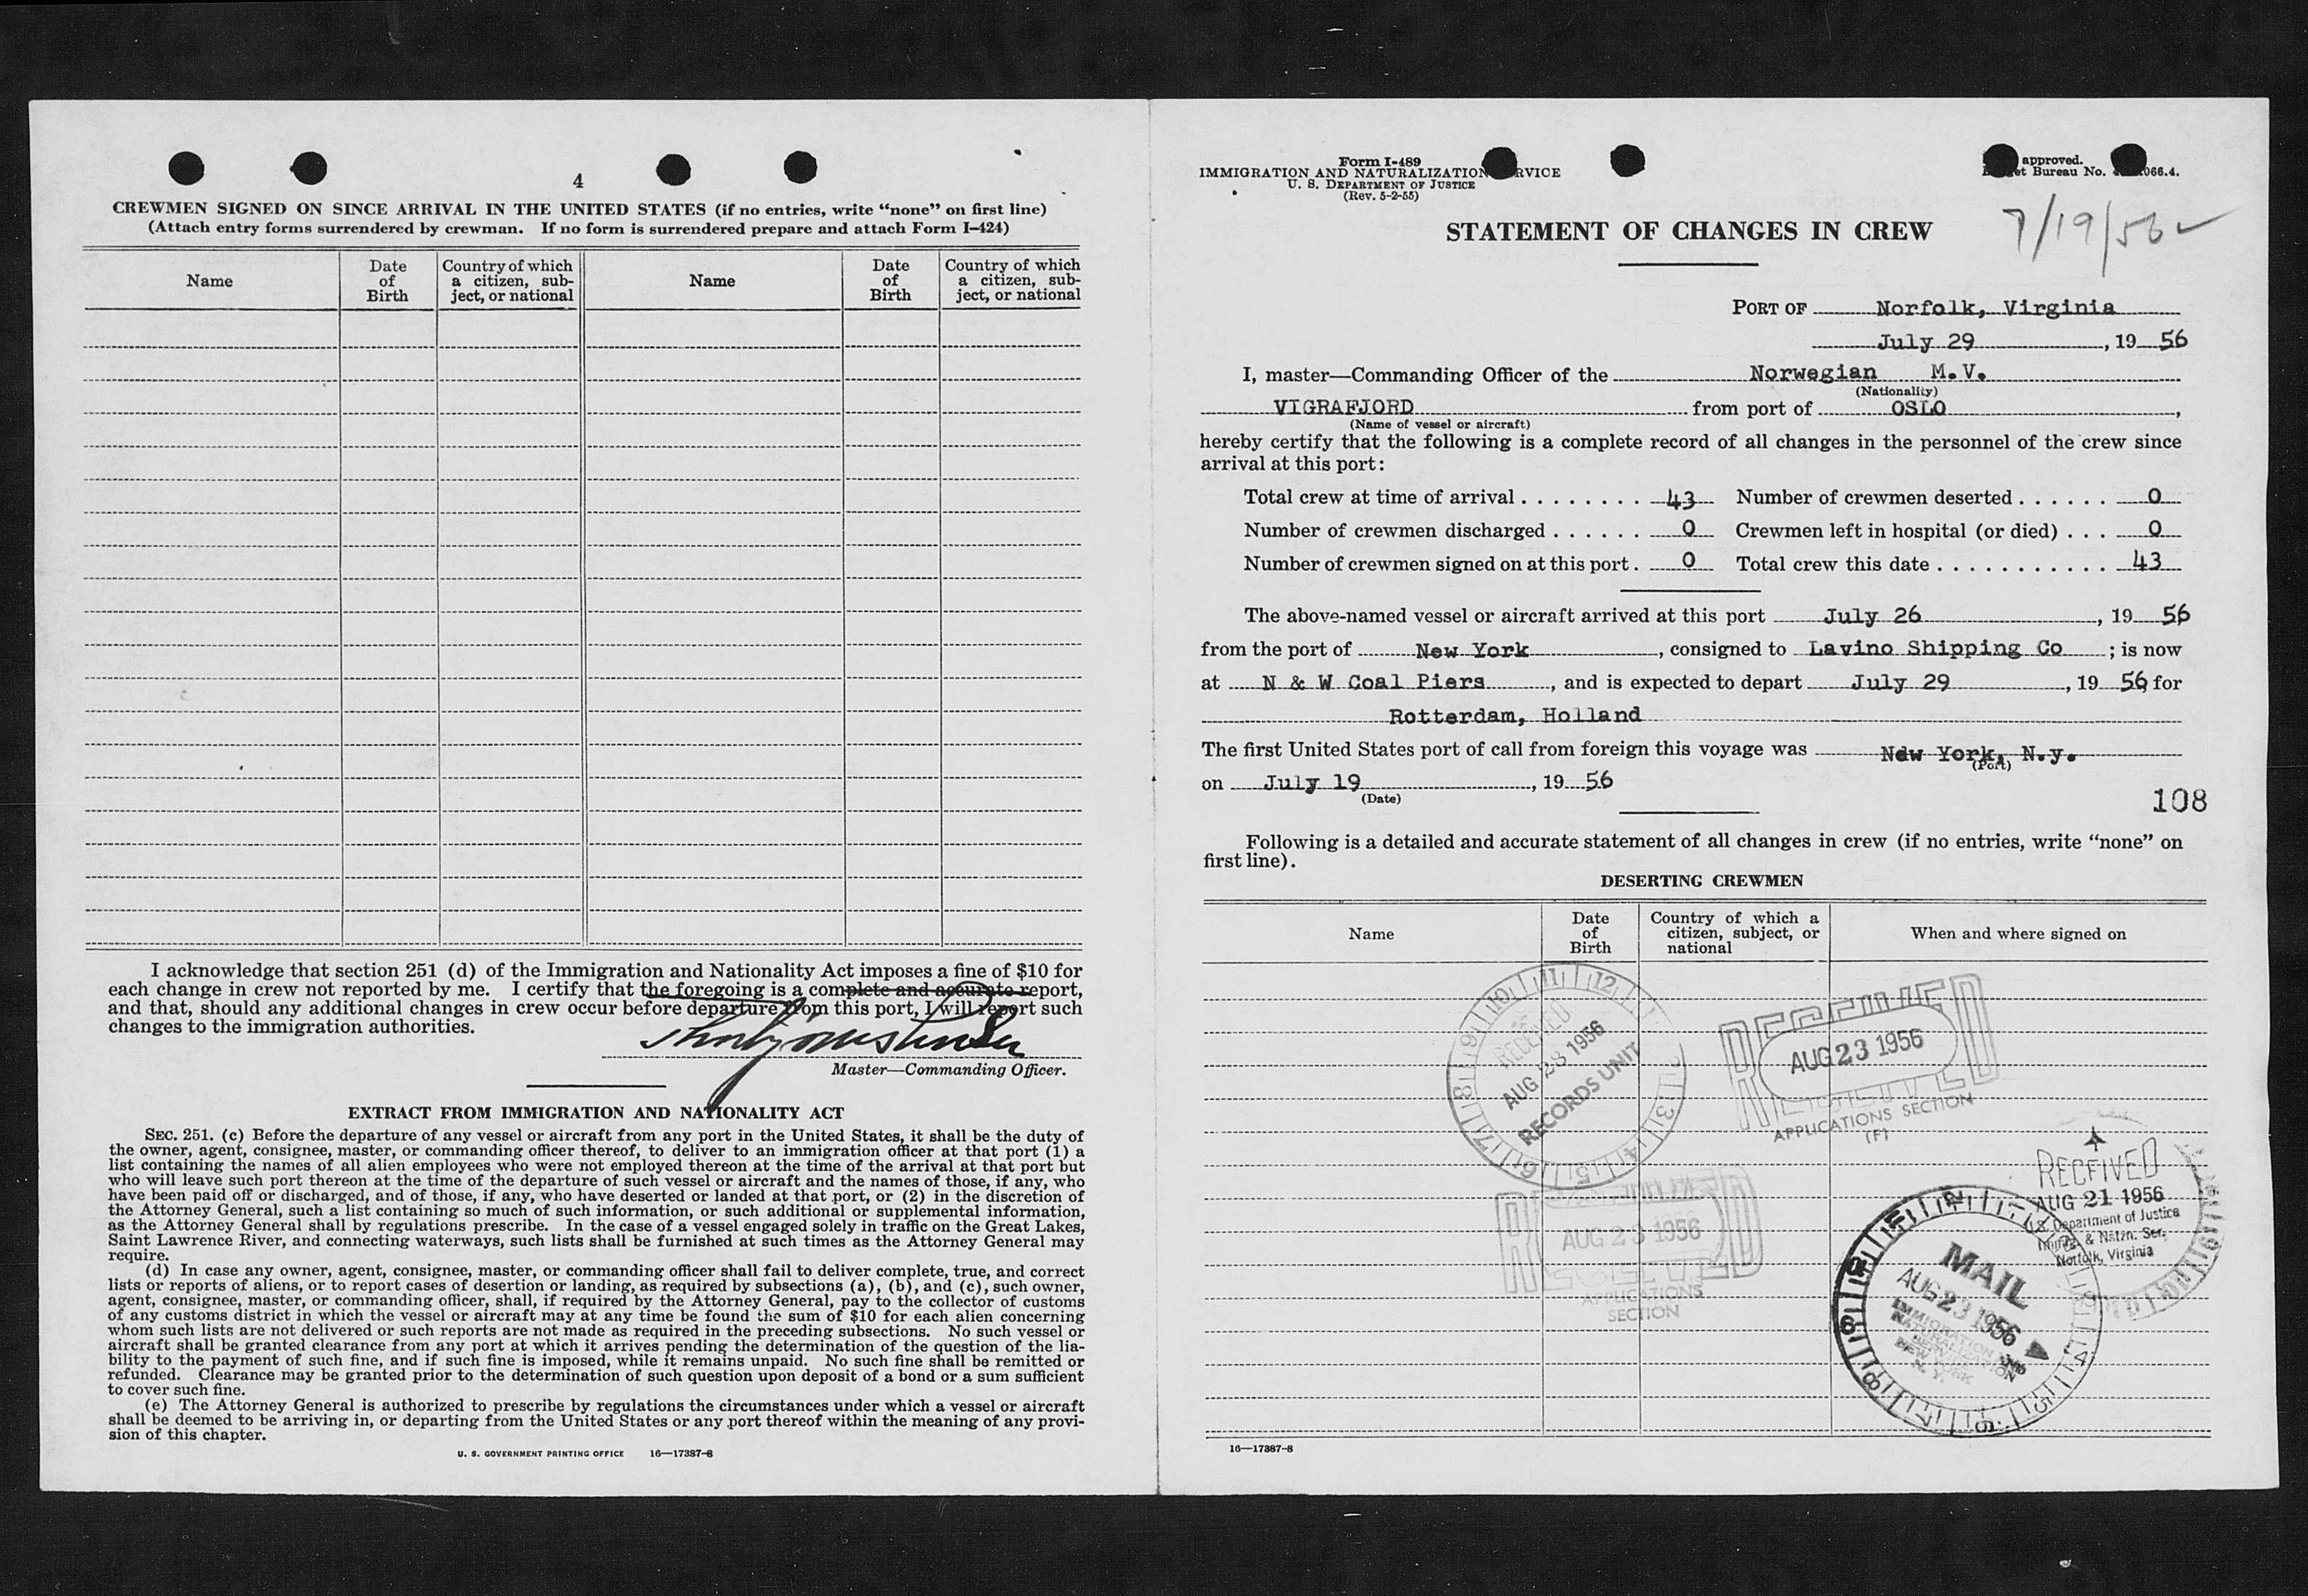 4
CREWMEN SIGNED ON SINCE ARRIVAL IN THE UNITED STATES (if no entries, write “none” on first line)
(Attach entry forms surrendered by crewman. If no form is surrendered prepare and attach Form I-424)
Name Date of Birth Country of which a citizen, sub-ject, or national Name Date of Birth Country of which a citizen, sub-ject, or national
I acknowledge that section 251 (d) of the Immigration and Nationality Act imposes a fine of $10 for
each change in crew not reported by me. I certify that the foregoing is a complete and accurate report,
and that, should any additional changes in crew occur before departure from this port, I will report such
changes to the immigration authorities.
Master—Commanding Officer.
EXTRACT FROM IMMIGRATION AND NATIONALITY ACT
SEC. 251. (c) Before the departure of any vessel or aircraft from any port in the United States, it shall be the duty of
the owner, agent, consignee, master, or commanding officer thereof, to deliver to an immigration officer at that port (1) a
list containing the names of all alien employees who were not employed thereon at the time of the arrival at that port but
who will leave such port thereon at the time of the departure of such vessel or aircraft and the names of those, if any, who
have been paid off or discharged, and of those, if any, who have deserted or landed at that port, or (2) in the discretion of
the Attorney General, such a list containing so much of such information, or such additional or supplemental information,
as the Attorney General shall by regulations prescribe. In the case of a vessel engaged solely in traffic on the Great Lakes,
Saint Lawrence River, and connecting waterways, such lists shall be furnished at such times as the Attorney General may
require.
(d) In case any owner, agent, consignee, master, or commanding officer shall fail to deliver complete, true, and correct
lists or reports of aliens, or to report cases of desertion or landing, as required by subsections (a), (b), and (c), such owner,
agent, consignee, master, or commanding officer, shall, if required by the Attorney General, pay to the collector of customs
of any customs district in which the vessel or aircraft may at any time be found the sum of $10 for each alien concerning
whom such lists are not delivered or such reports are not made as required in the preceding subsections. No such vessel or
aircraft shall be granted clearance from any port at which it arrives pending the determination of the question of the lia-
bility to the payment of such fine, and if such fine is imposed, while it remains unpaid. No such fine shall be remitted or
refunded. Clearance may be granted prior to the determination of such question upon deposit of a bond or a sum sufficient
to cover such fine.
(e) The Attorney General is authorized to prescribe by regulations the circumstances under which a vessel or aircraft
shall be deemed to be arriving in, or departing from the United States or any port thereof within the meaning of any provi-
sion of this chapter.
U. S. GOVERNMENT PRINTING OFFICE 16—17387-8
Form I-489
IMMIGRATION AND NATURALIZATION RVICE
U. S. DEPARTMENT OF JUSTICE
(Rev. 5-2-55)
approved.
et Bureau No. 066.4.
7/19/56
STATEMENT OF CHANGES IN CREW
PORT OF Norfolk, Virginia
July 29, 19 56
I, master—Commanding Officer of the Norwegian M.V.
(Nationality)
VIGRAFJORD from port of OSLO,
(Name of vessel or aircraft)
hereby certify that the following is a complete record of all changes in the personnel of the crew since
arrival at this port:
Total crew at time of arrival . . . . . . . . 43 Number of crewmen deserted . . . . . . 0
Number of crewmen discharged . . . . . . 0 Crewmen left in hospital (or died) . . . 0
Number of crewmen signed on at this port . 0 Total crew this date . . . . . . . . . . . 43
The above-named vessel or aircraft arrived at this port July 26, 19 56
from the port of New York, consigned to Lavino Shipping Co ; is now
at N & W Coal Piers, and is expected to depart July 29, 19 56, for
Rotterdam, Holland
The first United States port of call from foreign this voyage was New York, N.y.
(Port)
on July 19, 19 56
(Date)
108
Following is a detailed and accurate statement of all changes in crew (if no entries, write “none” on
first line).
DESERTING CREWMEN
Name Date of Birth Country of which a citizen, subject, or national When and where signed on
RECEIVED
AUG 28 1956
RECORDS UNIT
RECEIVED
AUG 23 1956
RECEIVED
APPLICATIONS SECTION
(F)
RECEIVED
AUG 21 1956
U.S. Department of Justice
Immig. & Natzn. Ser.
Norfolk, Virginia
AUG 23 1956
RECEIVED
APPLICATIONS
SECTION
MAIL
AUG 23 1956
IMMIGRATION AND
NATURALIZATION
SERVICE
NEW YORK
N. Y.
16—17387-8